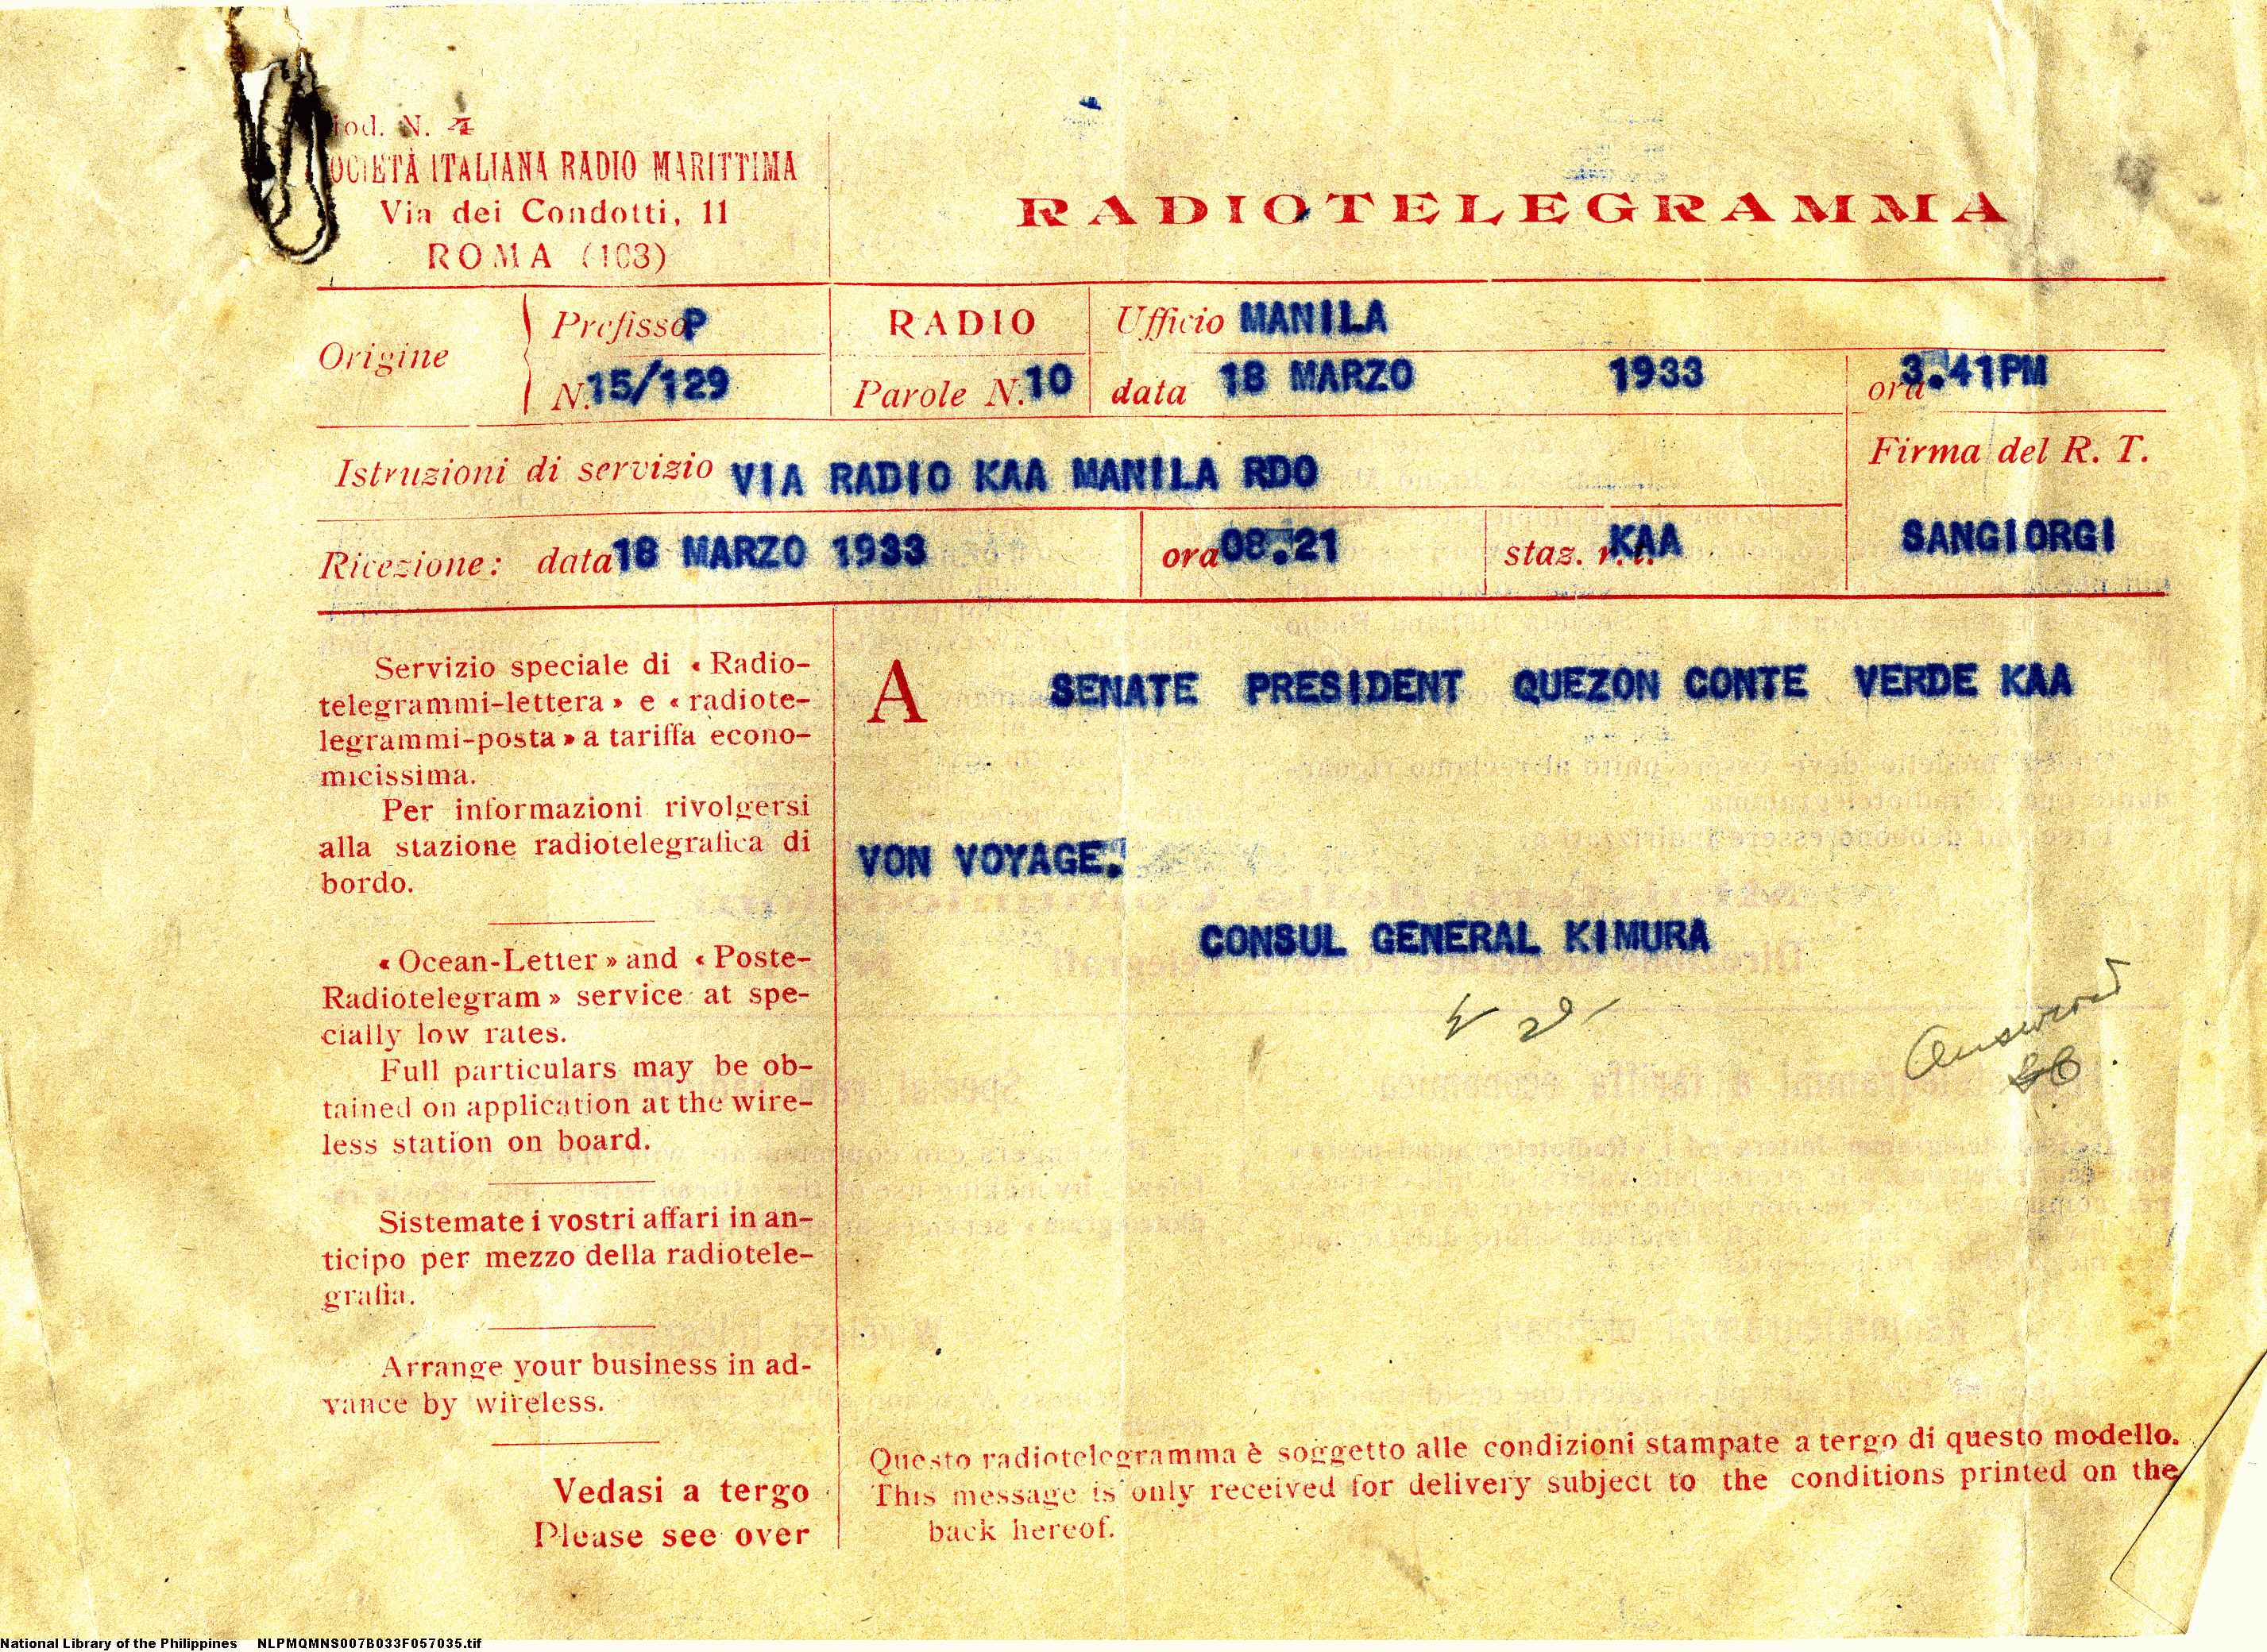 Mod. N. 4
SOCIETÀ ITALIANA RADIO MARITTIMA
Via dei Condotti, 11
ROMA (103)
RADIOTELEGRAMMA
Origine
Prefisso P
RADIO
Ufficio MANILA
N. 15/129
Parole N. 10
data 18 MARZO 1933
ora 3.41PM
Istruzioni di servizio VIA RADIO KAA MANILA RDO
Firma del R. T.
Ricezione: data 18 MARZO 1933
ora 08.21
staz. r.t. KAA
SANGIORGI
Servizio speciale di « Radio-
telegrammi-lettera » e « radiote-
legrammi-posta » a tariffa econo-
micissima.
Per informazioni rivolgersi
alla stazione radiotelegrafica di
bordo.
« Ocean-Letter » and « Poste-
Radiotelegram » service at spe-
cially low rates.
Full particulars may be ob-
tained on application at the wire-
less station on board.
Sistemate i vostri affari in an-
ticipo per mezzo della radiotele-
grafia.
Arrange your business in ad-
vance by wireless.
Vedasi a tergo
Please see over
A SENATE PRESIDENT QUEZON CONTE VERDE KAA
VON VOYAGE.
CONSUL GENERAL KIMURA
Answered
Questo radiotelegramma è soggetto alle condizioni stampate a tergo di questo modello.
This message is only received for delivery subject to the conditions printed on the
back hereof.
National Library of the Philippines NLPMQMNS007B033F057035.tif